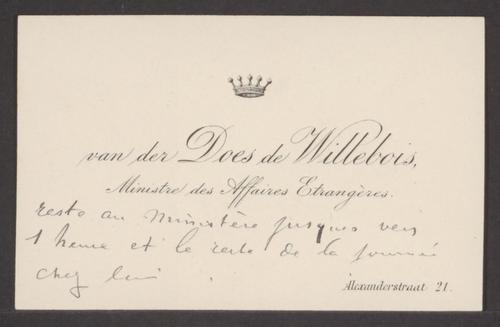 van der Does de Willebois,
Ministre des Affaires Etrangères.
reste au Ministère jusques vers
1 heure et le reste de la journée
chez lui.
Alexanderstraat 21.